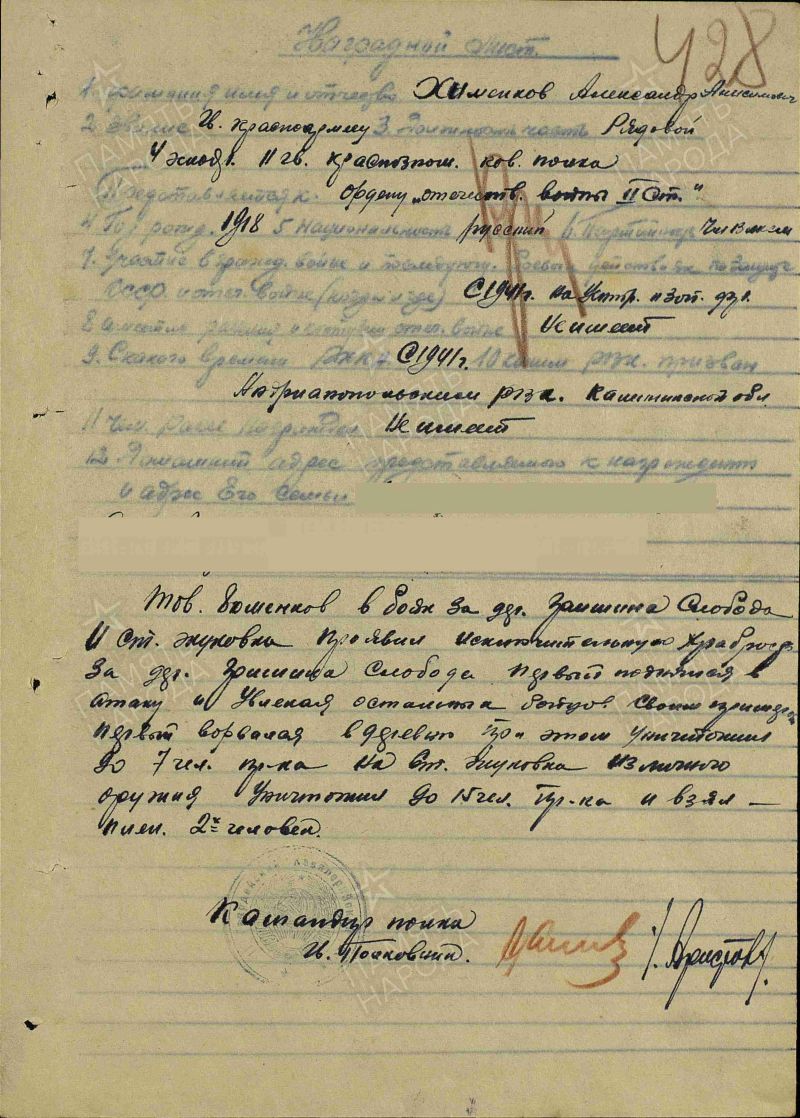 428
Наградной лист.
1. Фамилия имя и отчество Хименков Александр Анисимович
2. Звание Гв. красноармеец 3. Должность часть Рядовой
4 эскадр. 11 гв. краснознам. кав. полка
Представляется к. ордену „отечеств. войны II Ст."
4. Год рожд. 1918 5 Национальность русский 6. Партийность Чл ВЛКСМ
7. Участие в гражд. войне и последующ. боевых действиях по защите
СССР и отеч. войне (когда и где) С 1941г. на Центр. и зап. фр.
8 имеет ли ранения и контузии отеч. войне Не имеет
9. С какого времени РККА С 1941г. 10 каким рвк. призван
Андриапопольским рвк. Калининской обл.
11 Чем ранее награжден Не имеет
12. Домашний адрес представляемого к награждению
и адрес Его семьи
Тов. Хименков в боях за дер. Гришина Слобода
и ст. Жуковка проявил исключительную храбрость
За дер. Гришина Слобода первый поднялся в
атаку и увлекая остальных бойцов своим примером
первый ворвался в деревню При этом уничтожил
до 7 чел. пр-ка На Ст. Жуковка из личного
оружия Уничтожил до 15 чел. Пр-ка и взял
плен. 2х человек.
Командир полка
Гв. Полковник.
ПАМЯТЬ НАРОДА